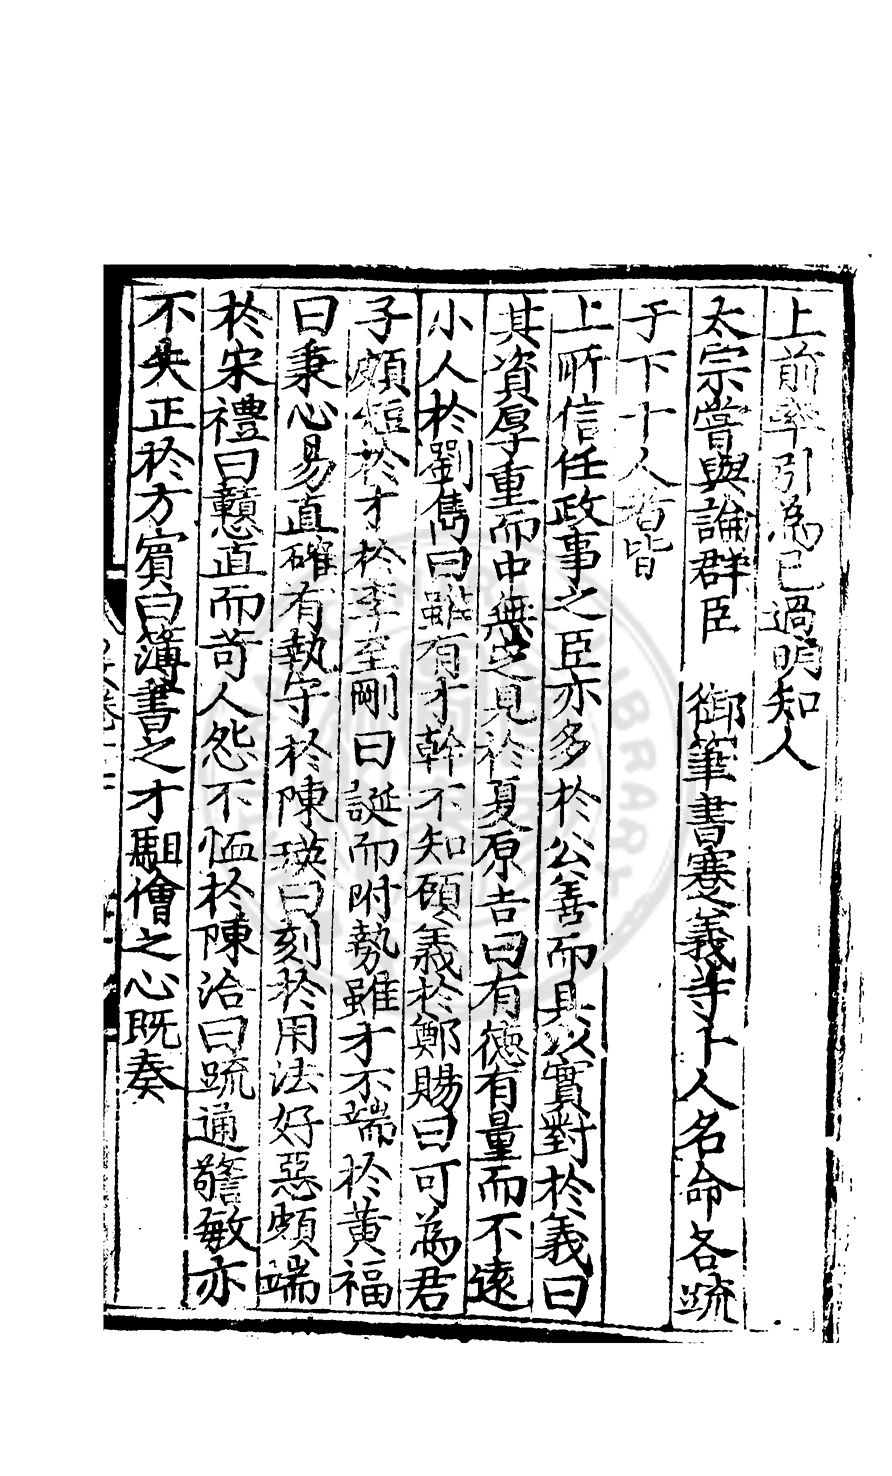 上前率引為己過明知人
太宗嘗與論群臣　御筆書蹇義等十人名命各疏
于下十人者皆
上所信任政事之臣亦多於公善而具以實對於義曰
其資厚重而中無定見於夏原吉曰有德有量而不遠
小人於劉雋曰雖有才幹不知顧義於鄭賜曰可為君
子頗短於才於李至剛曰誕而附勢雖才不端於黃福
曰秉心易直確有執守於陳瑛曰刻於用法好惡頗端
於宋禮曰戇直而苛人怨不恤於陳洽曰疏通警敏亦
不失正於方賓曰簿書之才駔儈之心既奏